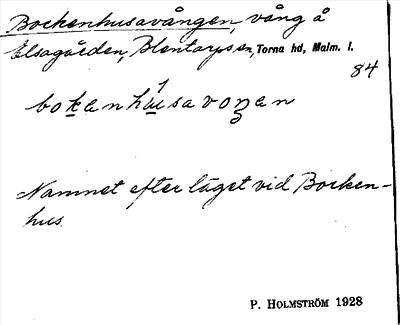 Bockenhusavången, vång å
Elsagården, Blentarps sn, Torna hd, Malm. l.
84
bokanhusavoŋan
Namnet efter läget vid Bocken-
hus.
P. HOLMSTRÖM 1928